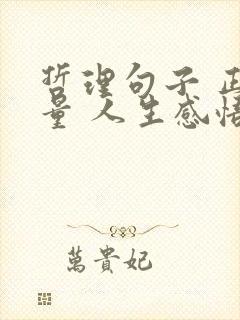 哲理句子 正
量 人生感悟
萬貴妃